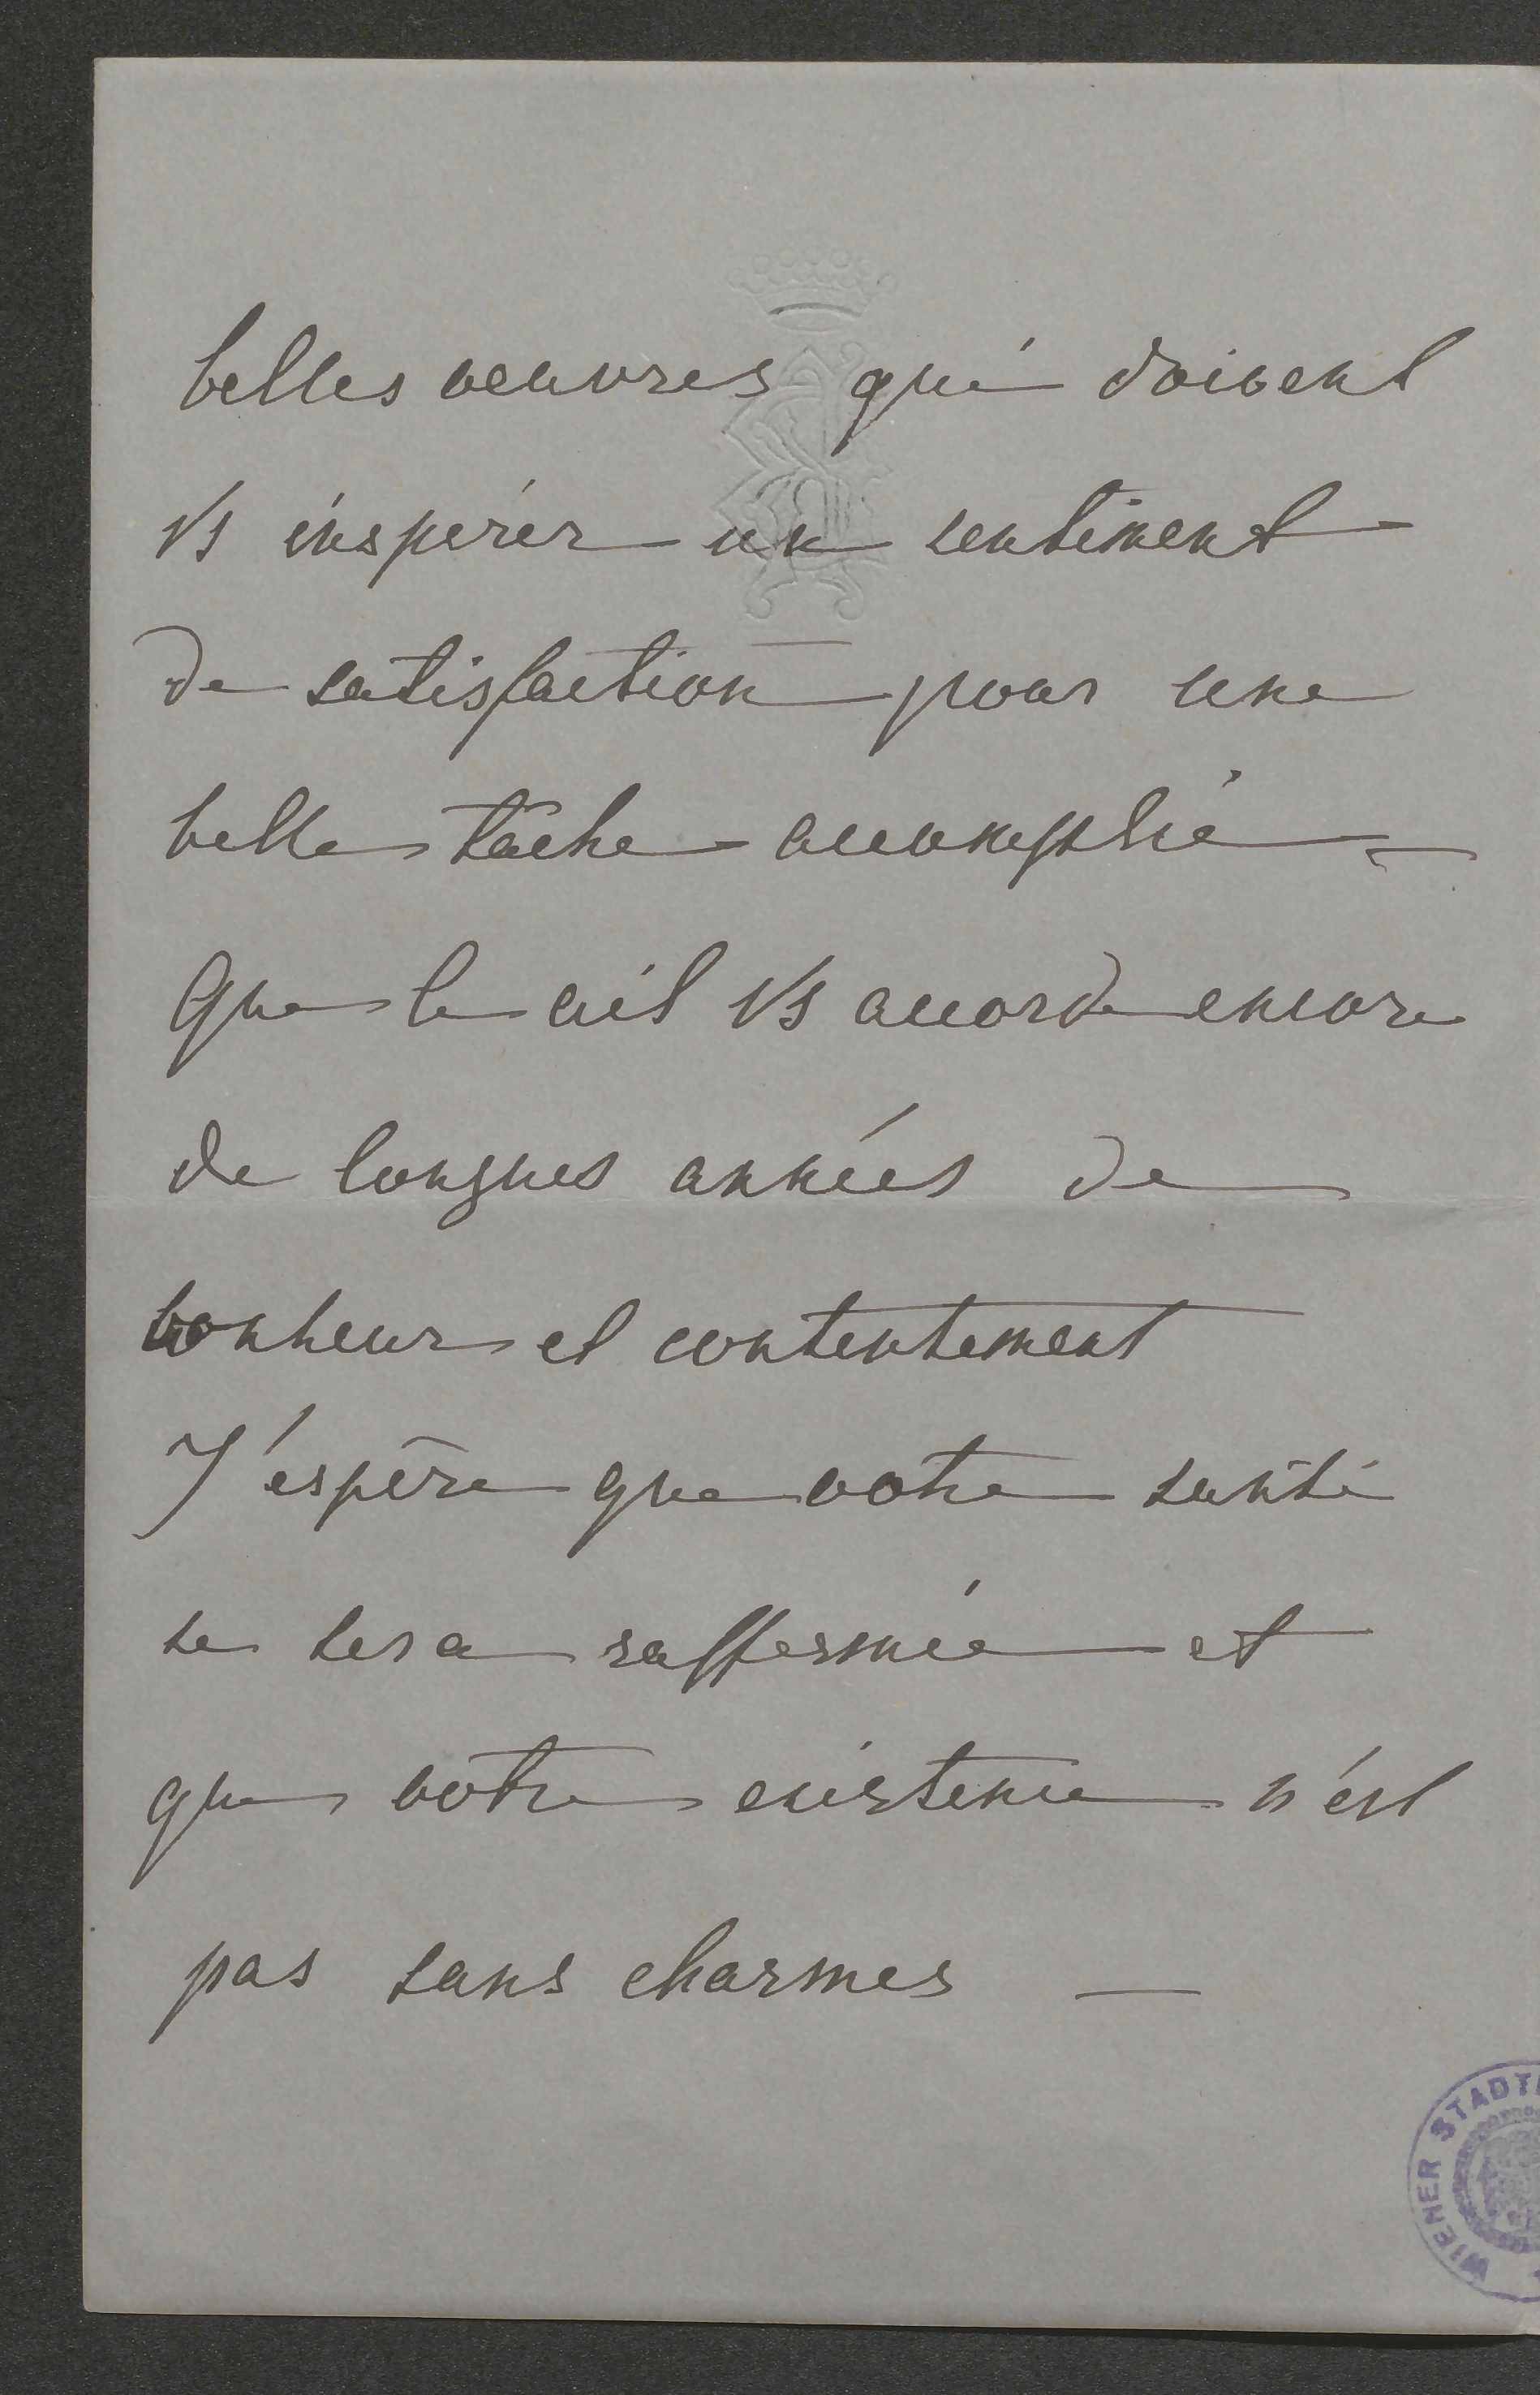 belles oeuvres qui doivent
Vs inspirer un sentiment
de satisfaction pour une
belle tâche accomplie –
Que le ciel Vs accorde encore
de longues années de
bonheur et contentement
J'espère que votre santé
se sera raffermie et
que votre existence n'est
pas sans charmes —
WIENER STADT